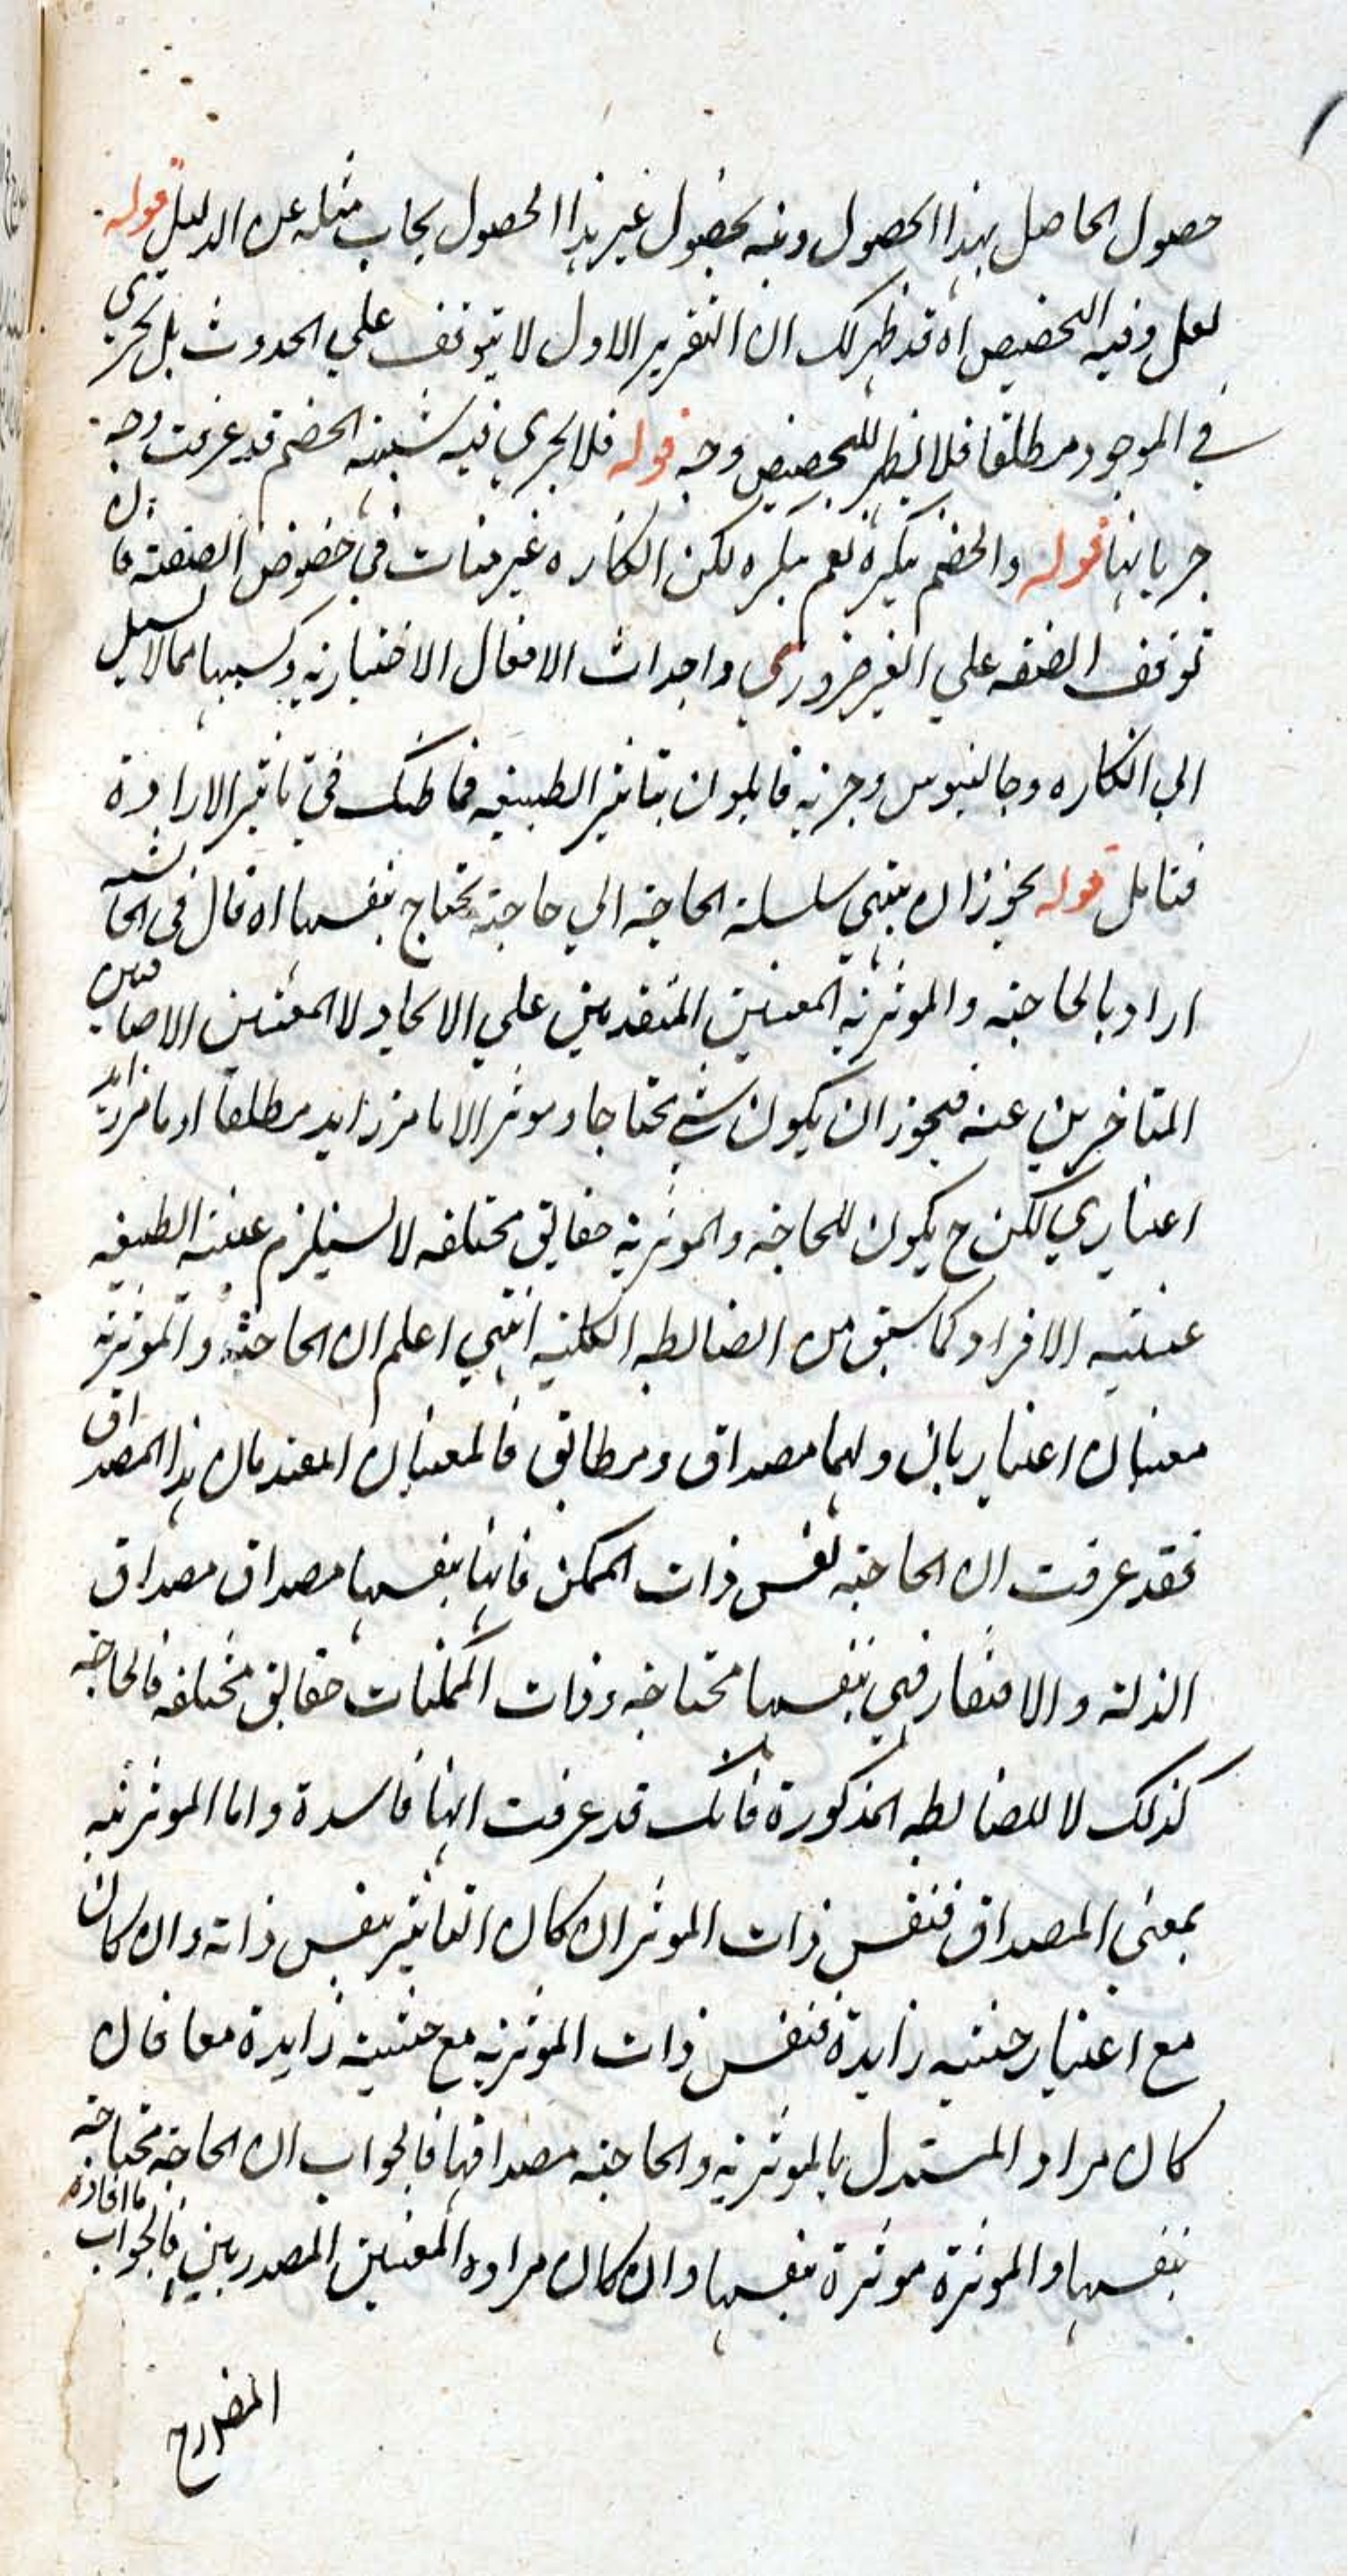 حصول الحاصل بهذا الحصول ومنه بحصول غير هذا الحصول يجاب مثله عن الدليل قوله
لعل وفيه التخصيص اه قد ظهر لك ان التقرير الاول لا يتوقف علي الحدوث بل تجري
في الموجود مطلقا فلا يظهر للتخصيص وجه قوله فلا يجري فيه شبهة الخصم قد عرفت وجه
جريانها قوله والخصم ينكره نعم ينكره لكن انكاره غير منات في خصوص الصنعة فان
توقف الصنعه علي الغير ضروري واحداث الافعال الاختيارية وكسبها مما لا سبيل
الي انكاره وجالينوس وحزبه قايلون بتاثير الطبيعه فما ظنك في تاثير الارادة
فتامل قوله يجوز ان ينتهي سلسلة الحاجة الي حاجة تحتاج بنفسها اه قال في الحاشيه
اراد بالحاجة والموثرية المعنيين المتقدمين علي الايجاد لا المعنيين الاضافيين
المتاخرين عنه فيجوز ان يكون شي محتاجا وموثرا لا بامر زايد مطلقا او بامر زايد
اعتباري لكن ح يكون للحاجة والموثرية حقايق مختلفه لا يستلزم عينية الطبيعه
عينيه الافراد كما سبق من الضابطه الكليه انتهي اعلم ان الحاجة والموثرية
معنيان اعتباريان ولهما مصداق ومطابق فالمعنيان المقدمان هذا المصداق
فقد عرفت ان الحاجة نفس ذات الممكن فانها بنفسها مصداق مصداق
الذلة والافتقار فهي بنفسها محتاجة وذات الممكنات حقايق مختلفه فالحاجة
كذلك لا للضابطه المذكورة فانك قد عرفت انها فاسدة واما الموثرية
بمعني المصداق فنفس ذات الموثر ان كان التاثير بنفس ذاته وان كان
مع اعتبار حيثيه زايدة فنفس ذات الموثرية مع حيثية زايدة معا فان
كان مراد المستدل بالموثرية والحاجة مصداقها فالجواب ان الحاجة محتاجة
بنفسها والموثرة موثرة بنفسها وان كان مراده المعنيين المصدريين فالجواب ما افاده
المص رح